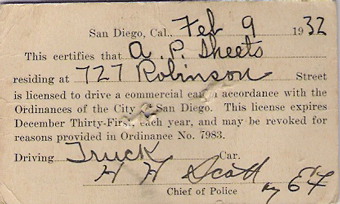 San Diego, Cal., Feb 9 1932
This certifies that A. P. Sheets
residing at 727 Robinson Street
is licensed to drive a commercial car in accordance with the
Ordinances of the City of San Diego. This license expires
December Thirty-First, each year, and may be revoked for
reasons provided in Ordinance No. 7983.
Driving Truck Car.
Scott
Chief of Police